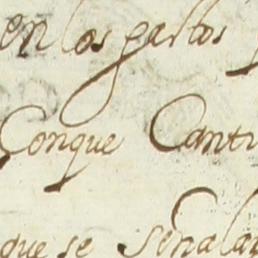 en los gastos
Conque Canti
que se señala